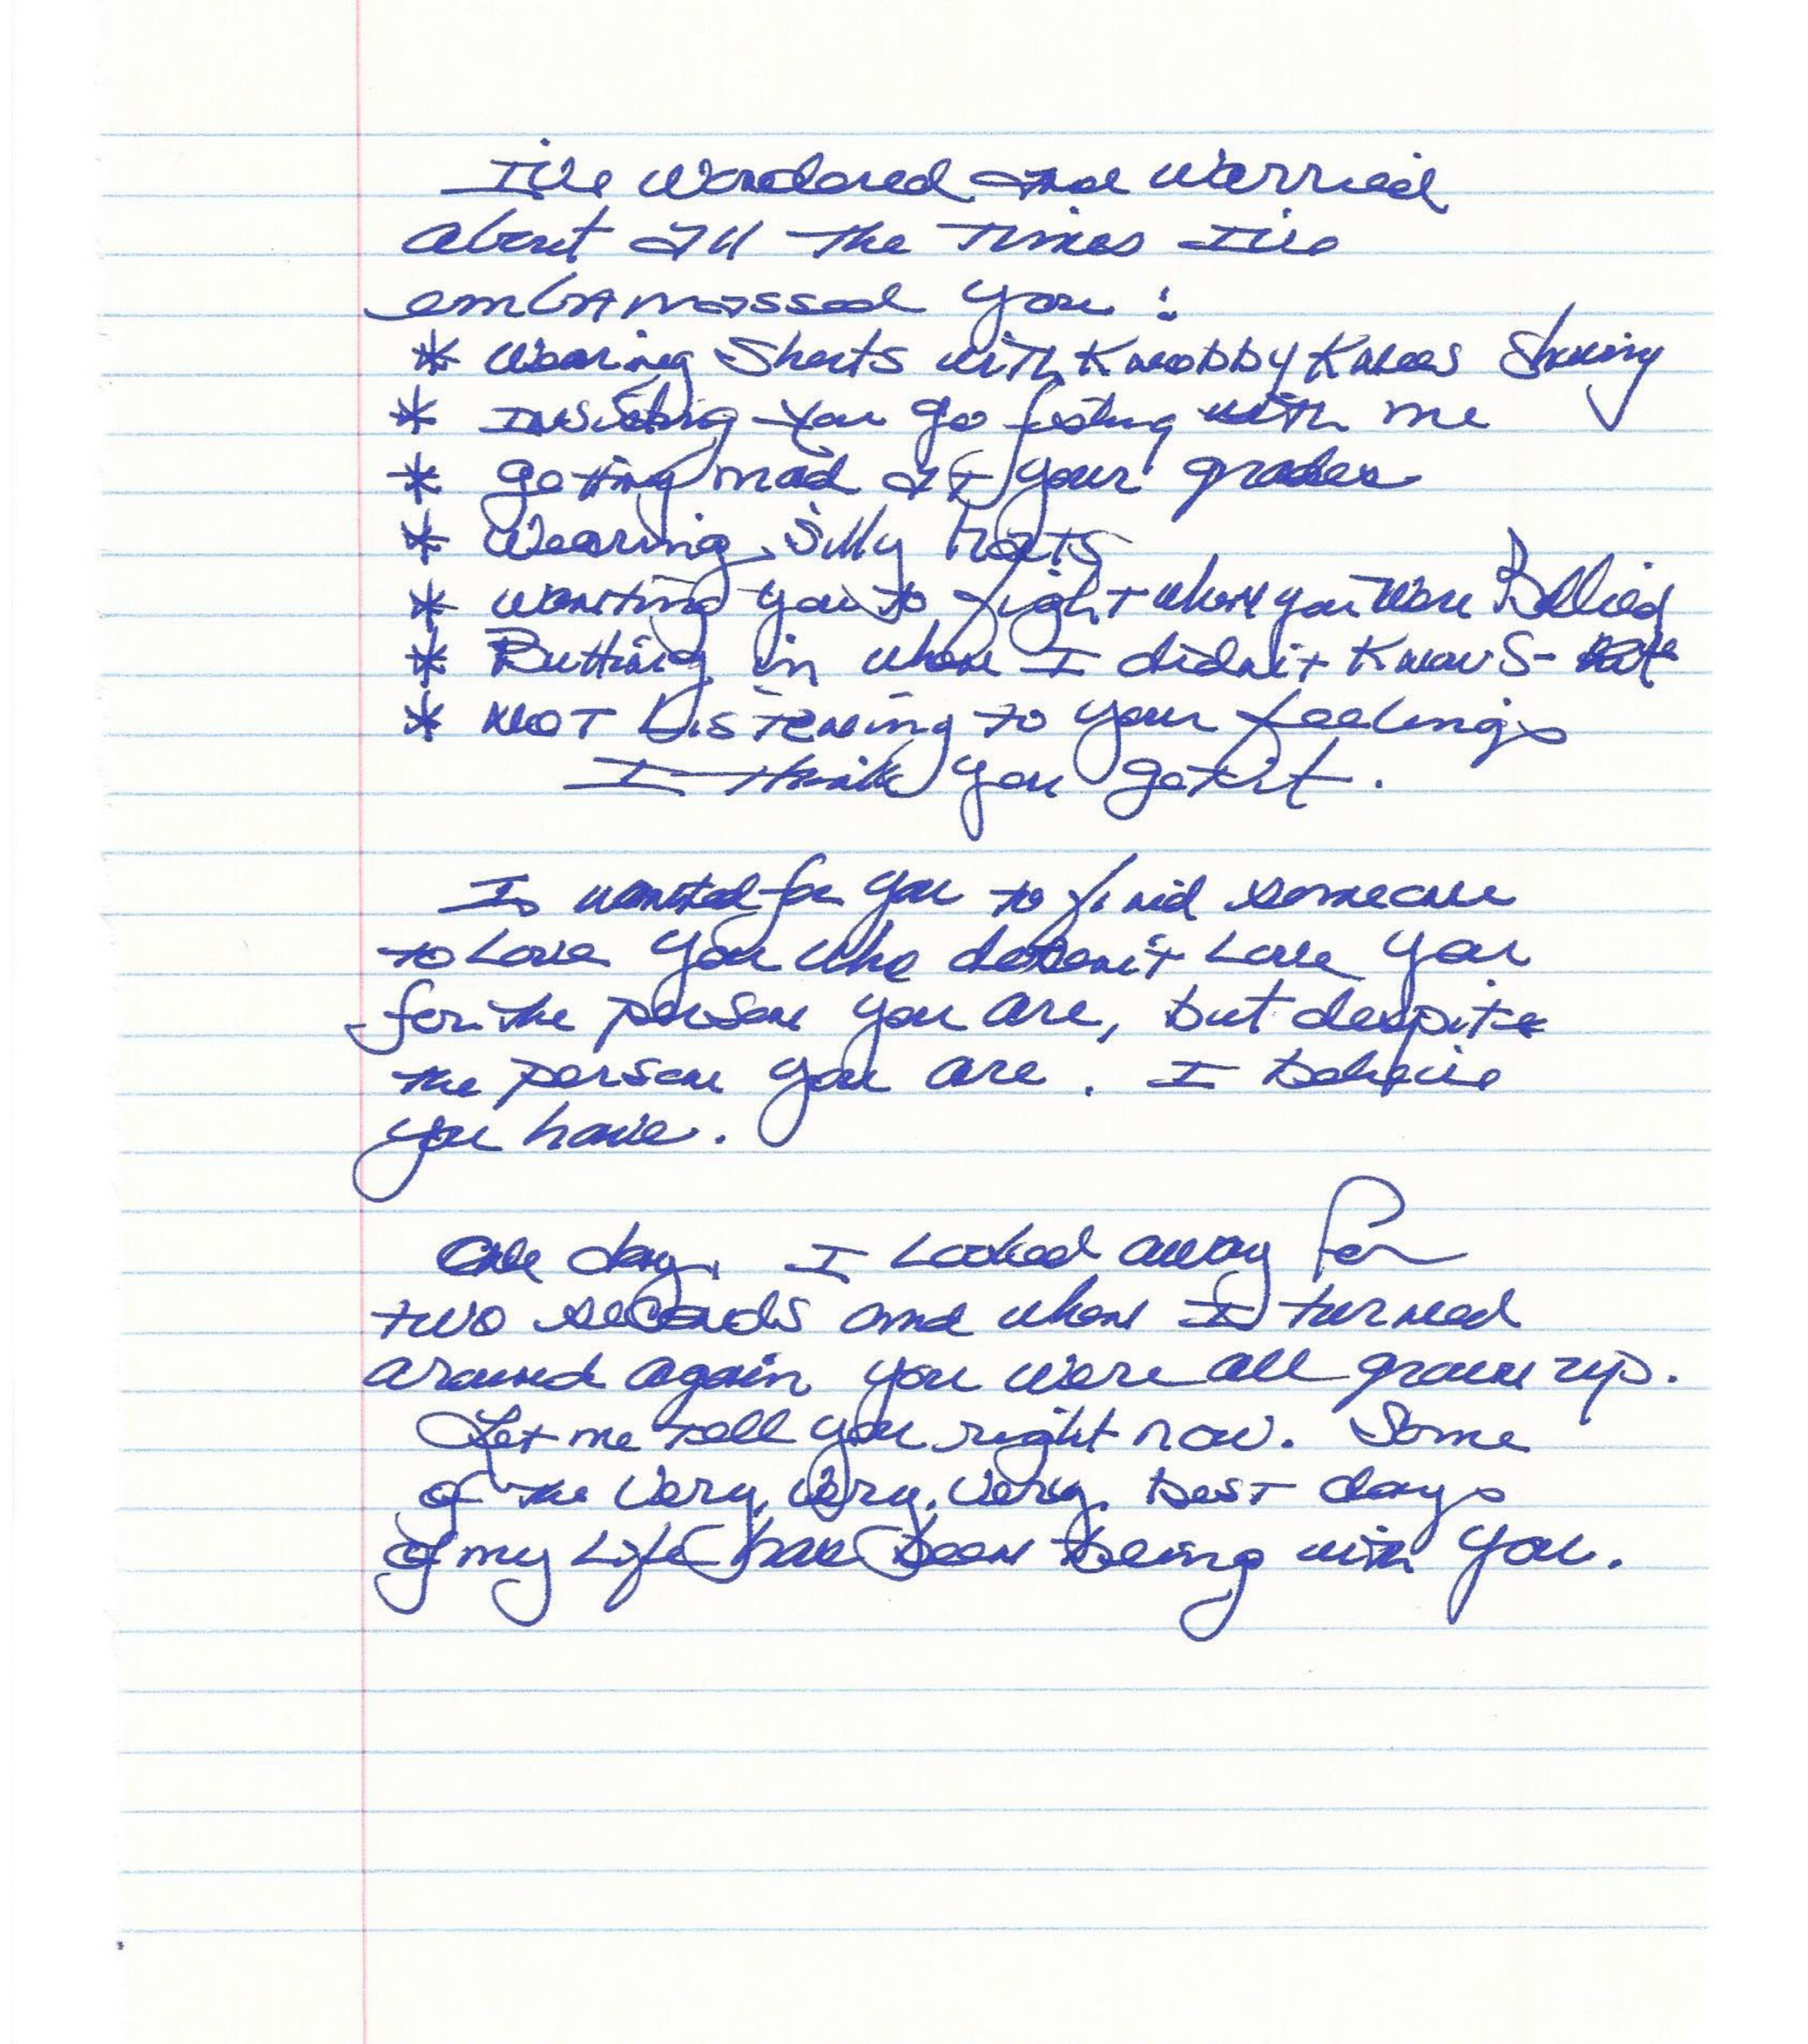 I've wondered and worried
about all the times I've
embarrassed you:
* Wearing Shorts with Knobby Knees Showing
* Insisting you go fishing with me
* getting mad at your grades
* Wearing silly hats
* wanting you to fight when you were Bullied
* Butting in when I didn't Know S-
* NOT Listening to your feelings
I think you get it.
I wanted for you to find someone
to Love you who doesn't Love you
for the person you are, but despite
the person you are. I believe
you have.
One day, I Looked away for
two seconds and when I turned
around again you were all grown up.
Let me tell you right now. Some
of the very, very, very, best days
of my Life have been being with you.